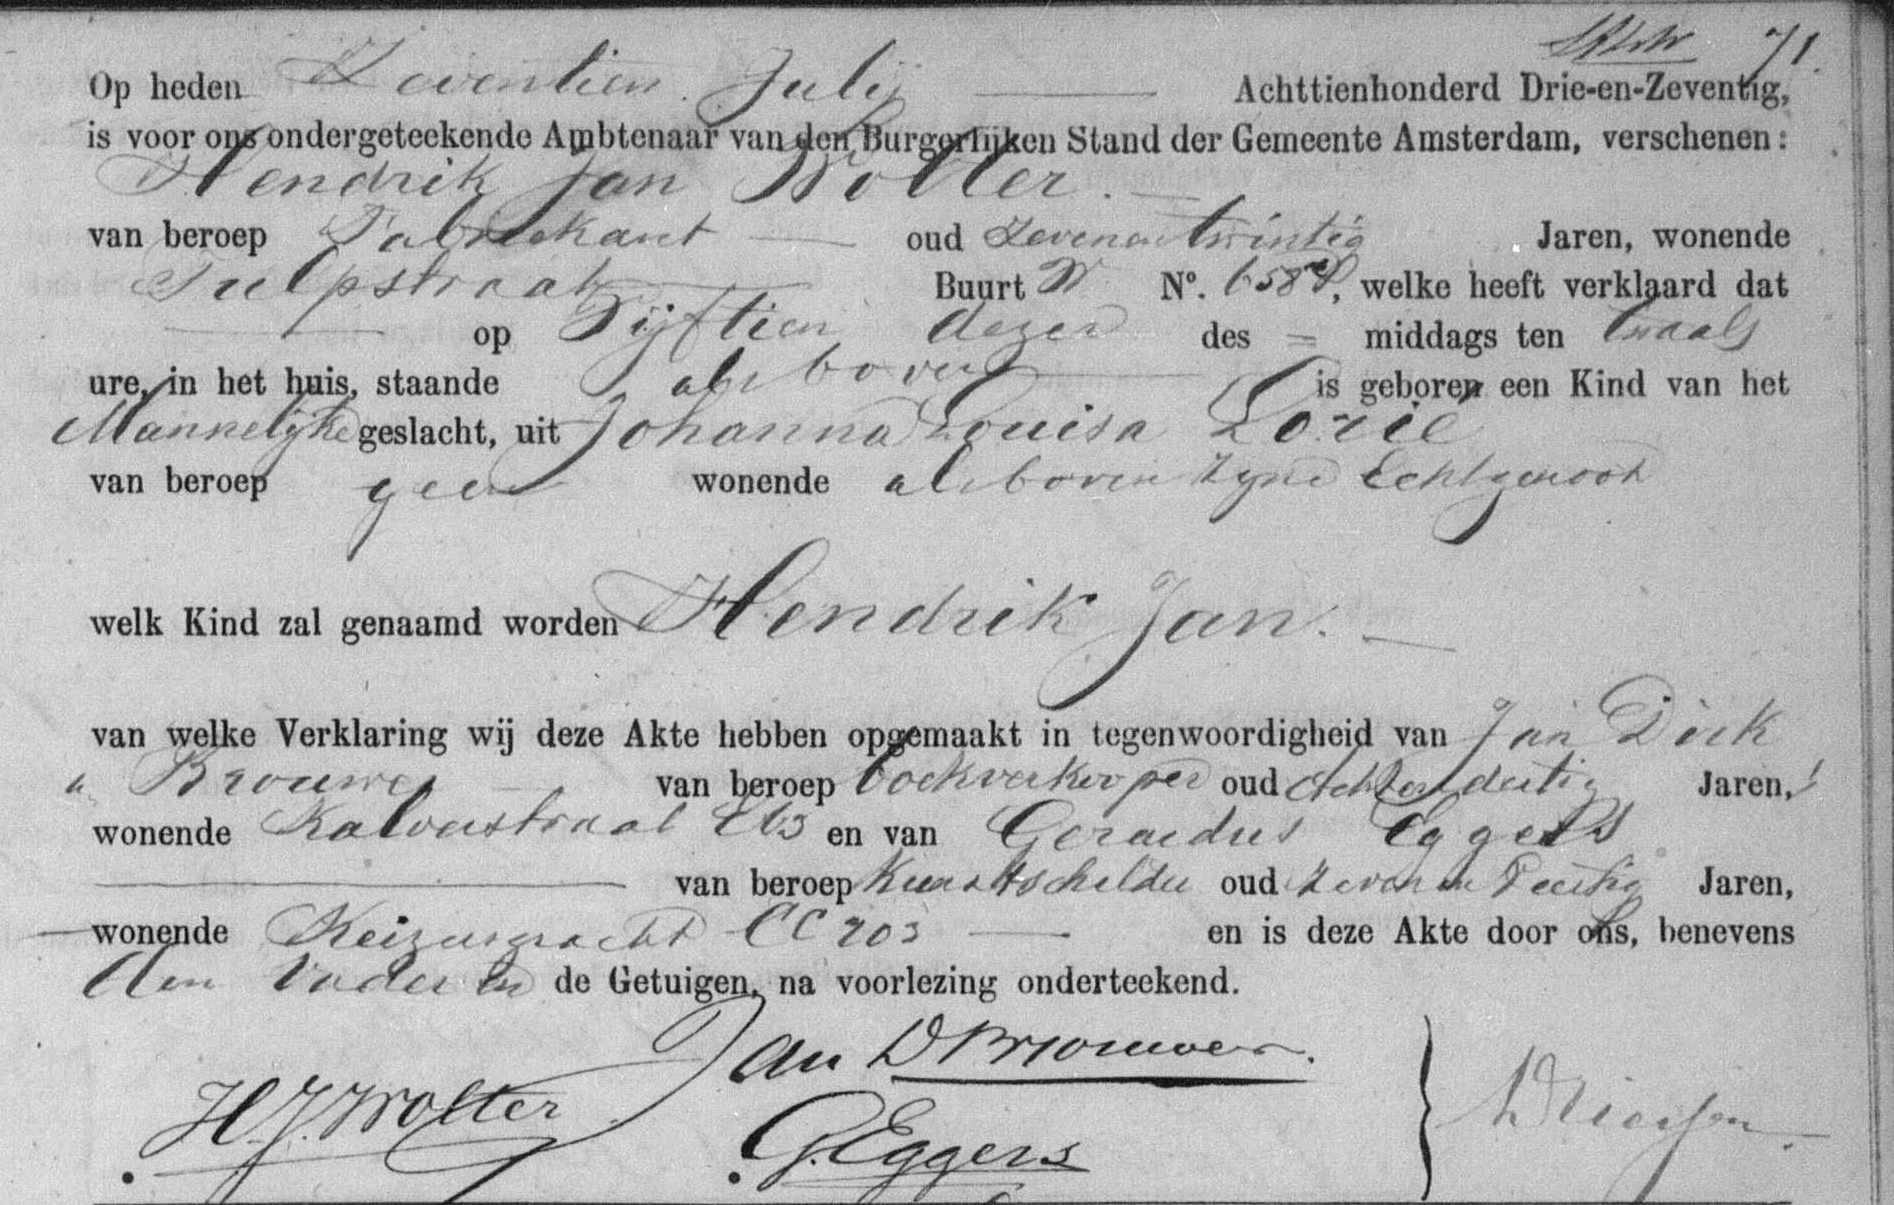 71.
Op heden Zeventien Julij Achttienhonderd Drie-en-Zeventig,
is voor ons ondergeteekende Ambtenaar van den Burgerlijken Stand der Gemeente Amsterdam, verschenen:
Hendrik Jan Wolter.
van beroep Fabriekant oud Zevenentwintig Jaren, wonende
Tulpstraat Buurt W No. 658, welke heeft verklaard dat
op Vijftien dezer des = middags ten twaalf
ure, in het huis, staande als boven is geboren een Kind van het
Mannelijke geslacht, uit Johanna Louisa Lorié
van beroep geen wonende als boven zijne Echtgenoot
welk Kind zal genaamd worden Hendrik Jan.
van welke Verklaring wij deze Akte hebben opgemaakt in tegenwoordigheid van Jan Dirk
Brouwer van beroep boekverkooper oud Achtendertig Jaren,
wonende Kalverstraat E 63 en van Gerardus Eggers
van beroep Kunstschilder oud zevenen Jaren,
wonende Keizersgracht CC 203 en is deze Akte door ons, benevens
den Vader en de Getuigen, na voorlezing onderteekend.
Jan D Brouwer.
H.J. Wolter
G. Eggers